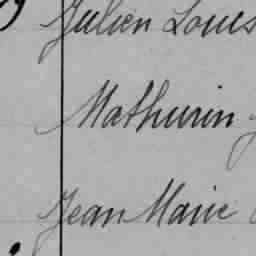 Julien Louis
Mathurin
Jean Marie